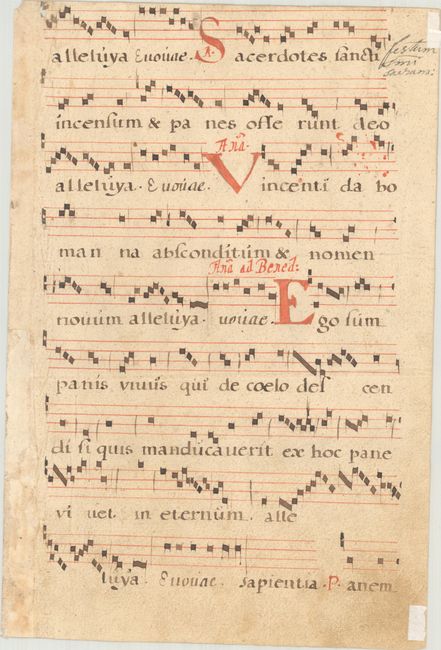 alleluya Euouae. A. Sacerdotes sancti
incensum & pa nes offe runt deo
Aña.
alleluya. Euouae. Vincenti da bo
man na absconditum & nomen
Aña ad Bened:
novum alleluya. uouae. Ego sum
panis vivus qui de coelo des cen
di si quis manducaverit ex hoc pane
vi vet. in eternum. alle
luya. Euouae. sapientia. P. anem